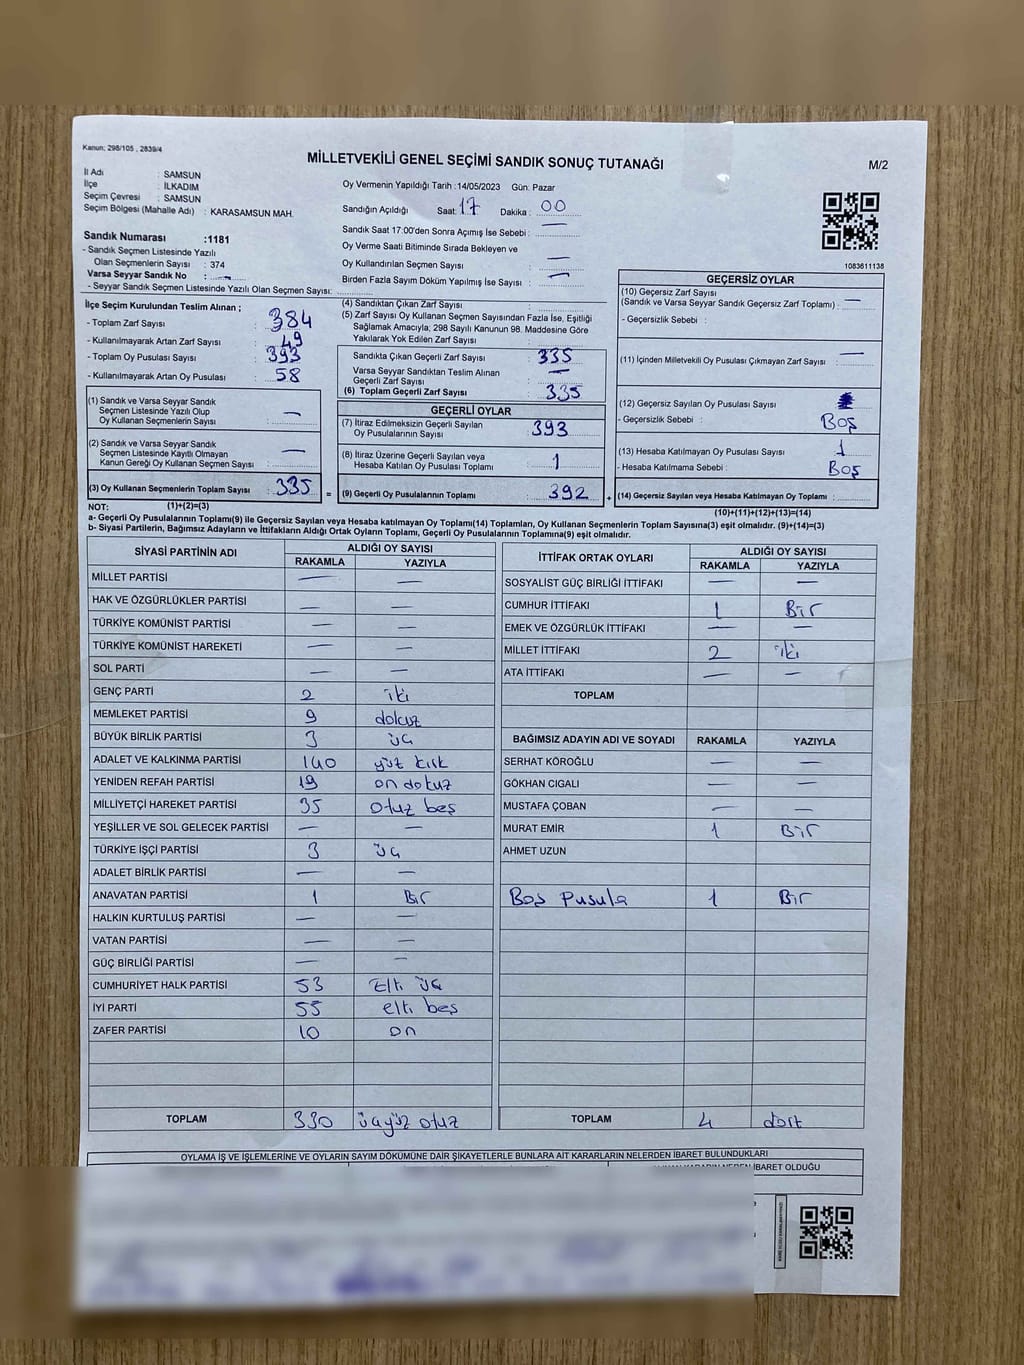 Kanun; 298/105 , 2839/4
MİLLETVEKİLİ GENEL SEÇİMİ SANDIK SONUÇ TUTANAĞI
M/2
İl Adı : SAMSUN
İlçe : İLKADIM
Seçim Çevresi : SAMSUN
Seçim Bölgesi (Mahalle Adı) : KARASAMSUN MAH.
Sandık Numarası :1181
- Sandık Seçmen Listesinde Yazılı
Olan Seçmenlerin Sayısı : 374
Varsa Seyyar Sandık No : —
- Seyyar Sandık Seçmen Listesinde Yazılı Olan Seçmen Sayısı:
Oy Vermenin Yapıldığı Tarih :14/05/2023 Gün: Pazar
Sandığın Açıldığı Saat: 17 Dakika : 00
Sandık Saat 17:00'den Sonra Açımış İse Sebebi : —
Oy Verme Saati Bitiminde Sırada Bekleyen ve
Oy Kullandırılan Seçmen Sayısı : —
Birden Fazla Sayım Döküm Yapılmış İse Sayısı : —
1083611138
İlçe Seçim Kurulundan Teslim Alınan ;
- Toplam Zarf Sayısı : 384
- Kullanılmayarak Artan Zarf Sayısı : 49
- Toplam Oy Pusulası Sayısı : 393
- Kullanılmayarak Artan Oy Pusulası : 58
(1) Sandık ve Varsa Seyyar Sandık
Seçmen Listesinde Yazılı Olup
Oy Kullanan Seçmenlerin Sayısı : —
(2) Sandık ve Varsa Seyyar Sandık
Seçmen Listesinde Kayıtlı Olmayan
Kanun Gereği Oy Kullanan Seçmen Sayısı : —
(3) Oy Kullanan Seçmenlerin Toplam Sayısı : 335
(1)+(2)=(3)
(4) Sandıktan Çıkan Zarf Sayısı :
(5) Zarf Sayısı Oy Kullanan Seçmen Sayısından Fazla İse, Eşitliği
Sağlamak Amacıyla; 298 Sayılı Kanunun 98. Maddesine Göre
Yakılarak Yok Edilen Zarf Sayısı :
Sandıkta Çıkan Geçerli Zarf Sayısı : 335
Varsa Seyyar Sandıktan Teslim Alınan
Geçerli Zarf Sayısı : —
(6) Toplam Geçerli Zarf Sayısı : 335
GEÇERLİ OYLAR
(7) İtiraz Edilmeksizin Geçerli Sayılan
Oy Pusulalarının Sayısı : 393
(8) İtiraz Üzerine Geçerli Sayılan veya
Hesaba Katılan Oy Pusulası Toplamı : 1
= (9) Geçerli Oy Pusulalarının Toplamı : 392 +
GEÇERSİZ OYLAR
(10) Geçersiz Zarf Sayısı
(Sandık ve Varsa Seyyar Sandık Geçersiz Zarf Toplamı) : —
- Geçersizlik Sebebi :
(11) İçinden Milletvekili Oy Pusulası Çıkmayan Zarf Sayısı : —
(12) Geçersiz Sayılan Oy Pusulası Sayısı :
- Geçersizlik Sebebi : Boş
(13) Hesaba Katılmayan Oy Pusulası Sayısı : 1
- Hesaba Katılmama Sebebi : Boş
(14) Geçersiz Sayılan veya Hesaba Katılmayan Oy Pusulası Toplamı :
(10)+(11)+(12)+(13)=(14)
NOT:
a- Geçerli Oy Pusulalarının Toplamı(9) ile Geçersiz Sayılan veya Hesaba katılmayan Oy Toplamı(14) Toplamları, Oy Kullanan Seçmenlerin Toplam Sayısına(3) eşit olmalıdır. (9)+(14)=(3)
b- Siyasi Partilerin, Bağımsız Adayların ve İttifakların Aldığı Ortak Oyların Toplamı, Geçerli Oy Pusulalarının Toplamına(9) eşit olmalıdır.
SİYASİ PARTİNİN ADI ALDIĞI OY SAYISI
RAKAMLA YAZIYLA
MİLLET PARTİSİ — —
HAK VE ÖZGÜRLÜKLER PARTİSİ — —
TÜRKİYE KOMÜNİST PARTİSİ — —
TÜRKİYE KOMÜNİST HAREKETİ — —
SOL PARTİ — —
GENÇ PARTİ 2 iki
MEMLEKET PARTİSİ 9 dokuz
BÜYÜK BİRLİK PARTİSİ 3 üç
ADALET VE KALKINMA PARTİSİ 140 yüz kırk
YENİDEN REFAH PARTİSİ 19 on dokuz
MİLLİYETÇİ HAREKET PARTİSİ 35 otuz beş
YEŞİLLER VE SOL GELECEK PARTİSİ — —
TÜRKİYE İŞÇİ PARTİSİ 3 üç
ADALET BİRLİK PARTİSİ — —
ANAVATAN PARTİSİ 1 Bir
HALKIN KURTULUŞ PARTİSİ — —
VATAN PARTİSİ — —
GÜÇ BİRLİĞİ PARTİSİ — —
CUMHURİYET HALK PARTİSİ 53 Elli üç
İYİ PARTİ 55 elli beş
ZAFER PARTİSİ 10 on
TOPLAM 330 üçyüz otuz
İTTİFAK ORTAK OYLARI ALDIĞI OY SAYISI
RAKAMLA YAZIYLA
SOSYALİST GÜÇ BİRLİĞİ İTTİFAKI — —
CUMHUR İTTİFAKI 1 Bir
EMEK VE ÖZGÜRLÜK İTTİFAKI — —
MİLLET İTTİFAKI 2 iki
ATA İTTİFAKI — —
TOPLAM
BAĞIMSIZ ADAYIN ADI VE SOYADI RAKAMLA YAZIYLA
SERHAT KÖROĞLU — —
GÖKHAN CIGALI — —
MUSTAFA ÇOBAN — —
MURAT EMİR 1 Bir
AHMET UZUN
Boş Pusula 1 Bir
TOPLAM 4 dört
OYLAMA İŞ VE İŞLEMLERİNE VE OYLARIN SAYIM DÖKÜMÜNE DAİR ŞİKAYETLERLE BUNLARA AİT KARARLARIN NELERDEN İBARET BULUNDUKLARI
İBARET OLDUĞU